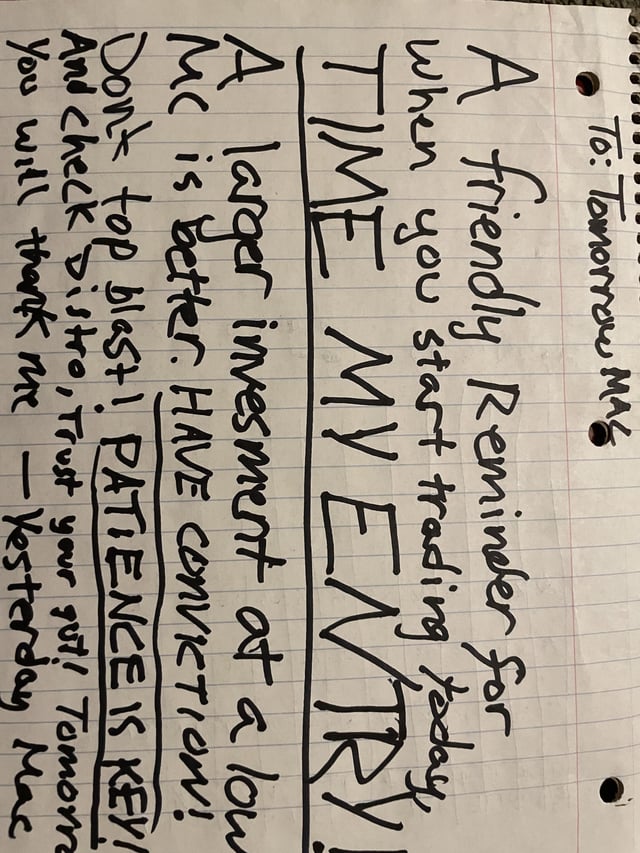 To: Tomorrow MAC
A friendly Reminder for
when you start trading today,
TIME MY ENTRY!
A larger invesment at a low
MC is better. HAVE CONVICTION!
Don't top blast! PATIENCE IS KEY!
And check Distro, Trust your gut! Tomorro
you will thank me — Yesterday Mac